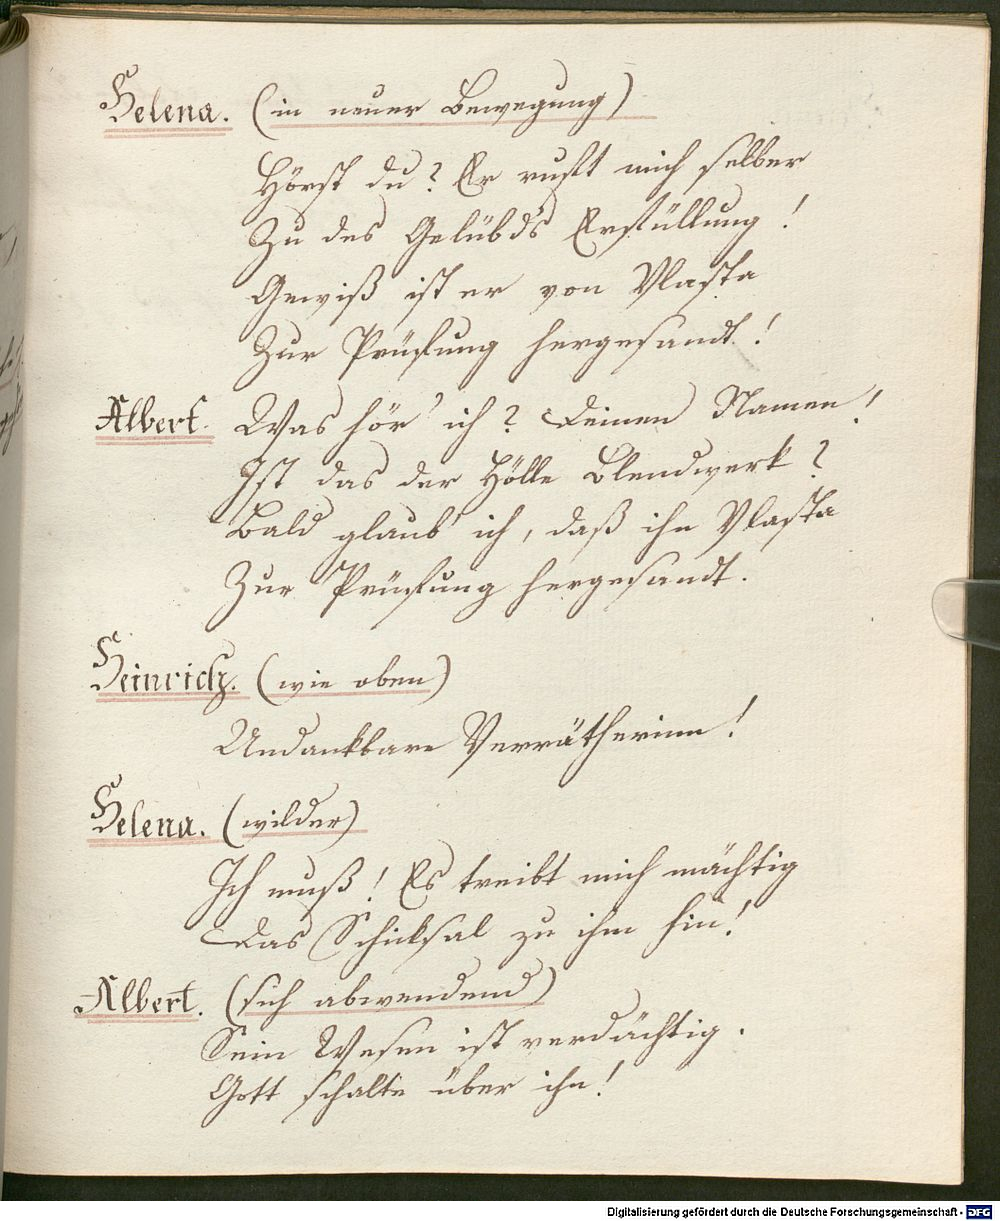 Helena. (in neuer Bewegung)
Hörst du? Er ruft mich selber
Zu des Gelübd's Erfüllung!
Gewiß ist er von Vlasta
Zur Prüfung hergesandt!
Albert. Was hör' ich? Deinen Namen!
Ist das der Hölle Blendwerk?
Bald glaub' ich, daß ihn Vlasta
Zur Prüfung hergesandt.
Heinrich. (wie oben)
Undankbare Verrätherinn!
Helena. (wilder)
Ich muß! Es treibt mich mächtig
Das Schicksal zu ihm hin!
Albert. (sich abwendend)
Sein Wesen ist verdächtig.
Gott schalte über ihn!
Digitalisierung gefördert durch die Deutsche Forschungsgemeinschaft - DFG